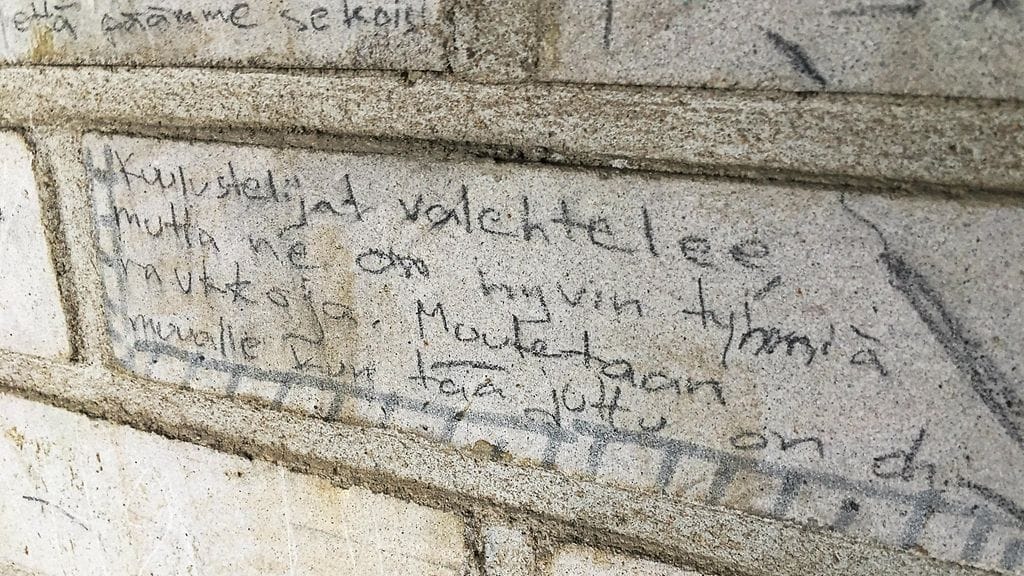 että
Kuulustelijat valehtelee,
mutta ne on hyvin tyhmiä
mulkkoja. Muutetaan
muualle kun tää juttu on oh